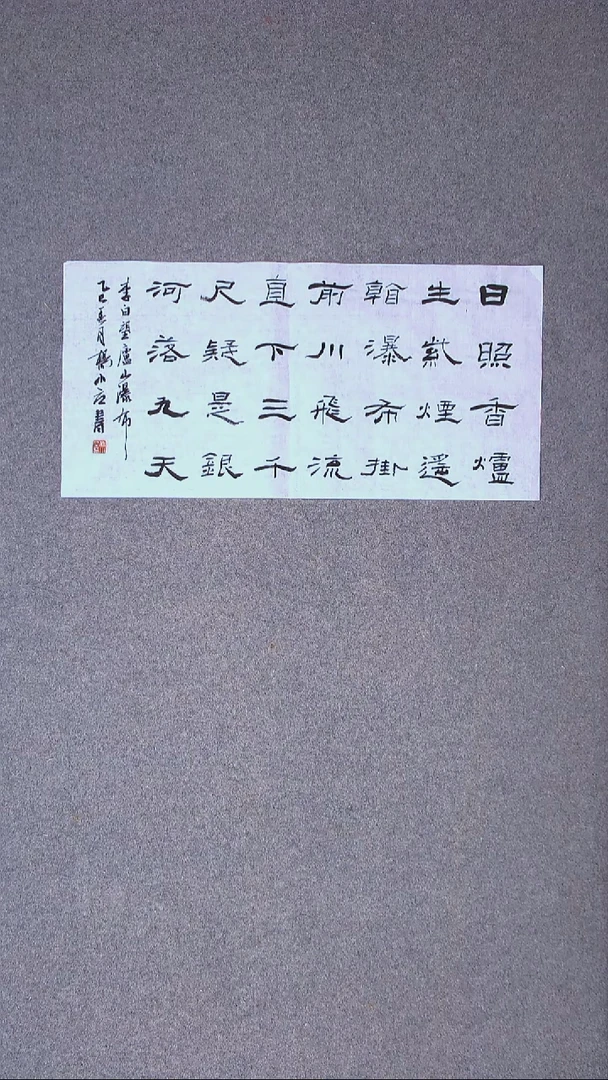 日照香爐
生紫煙遥
看瀑布掛
前川飛流
直下三千
尺疑是銀
河落九天
李白望廬山瀑布
乙巳月書